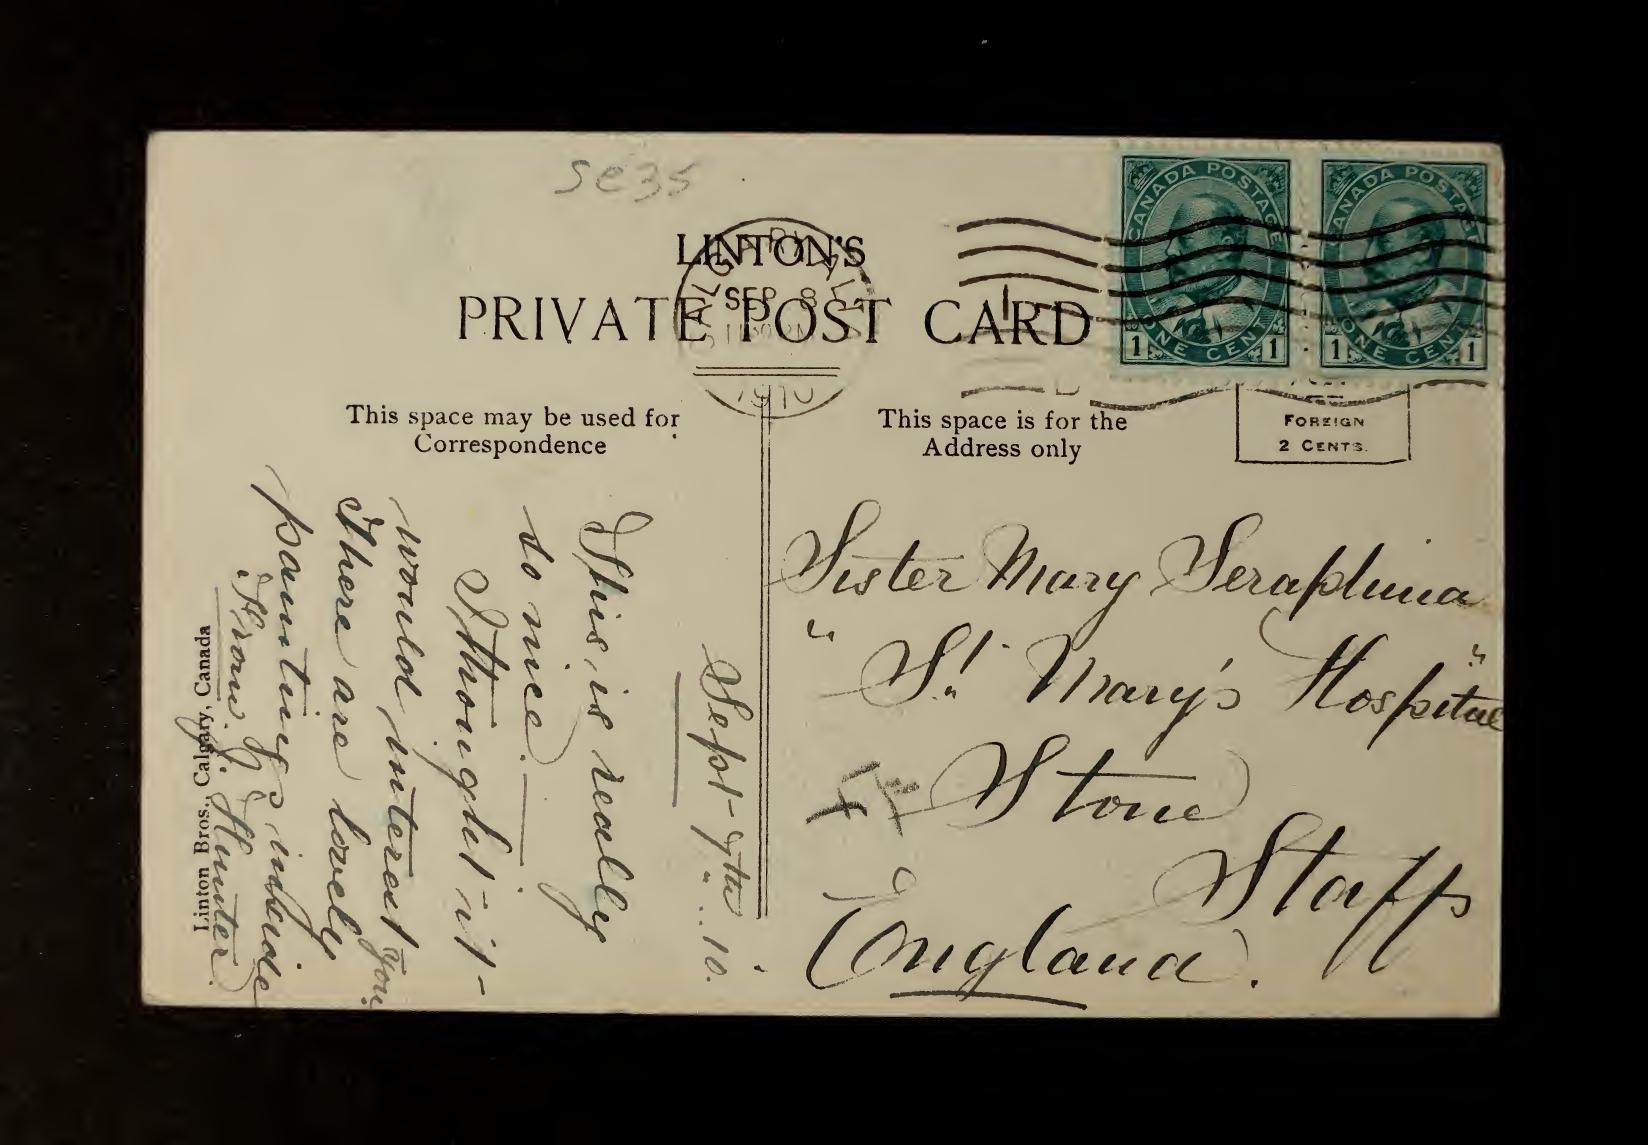 se35
LINTON'S
PRIVATE POST CARD
SEP 8
1910
CANADA POSTAGE
1 ONE CENT 1
CANADA POSTAGE
1 ONE CENT 1
This space may be used for
Correspondence
This space is for the
Address only
FOREIGN
2 CENTS.
Sept-7th..10.
This, is really
so nice.
I thought it-
would, interest you.
There are lovely
paintings, inside
From. J. Hunter.
Linton Bros., Calgary, Canada
Sister Mary Seraphina
"St. Mary's Hospital"
Stone
Staffs
England.